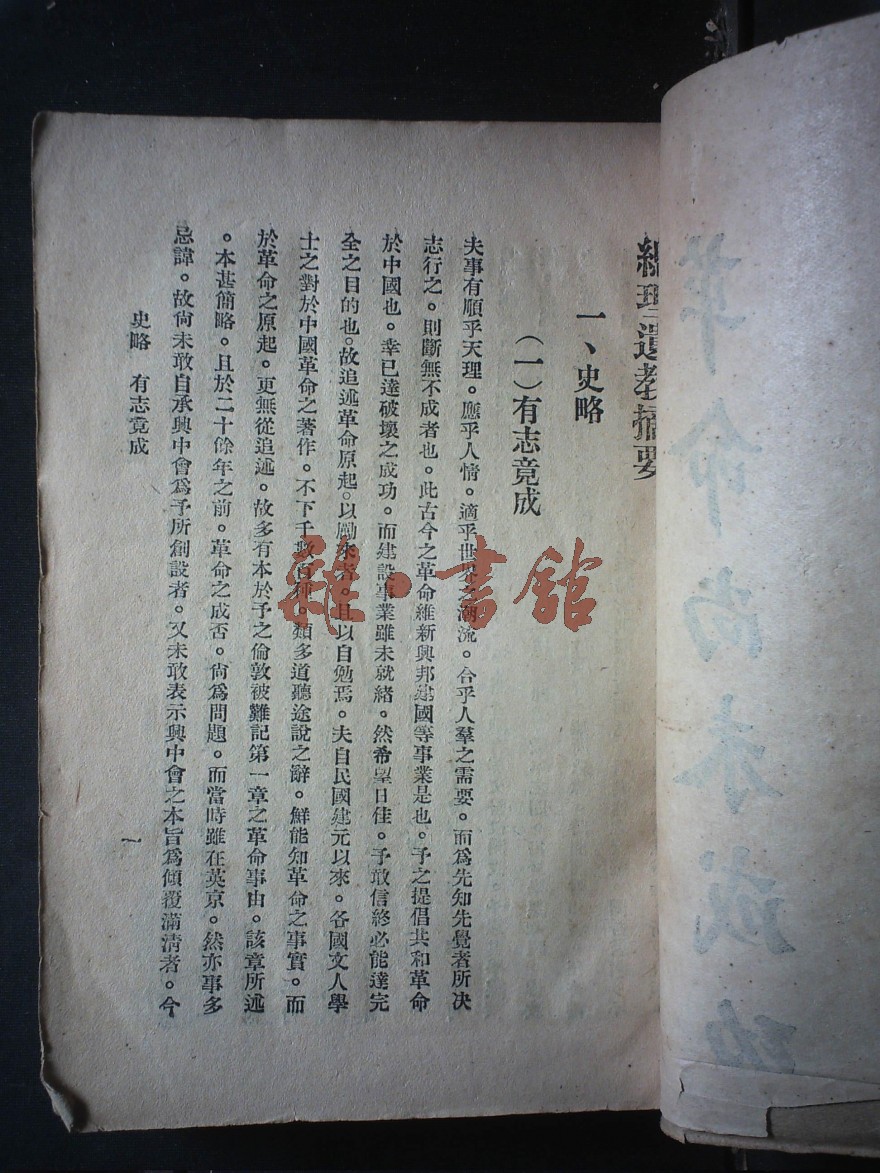 革命尚未成功
總理遺教摘要
一、史略
（一）有志竟成
夫事有順乎天理。應乎人情。適乎世界之潮流。合乎人羣之需要。而爲先知先覺者所决
志行之。則斷無不成者也。此古今之革命維新興邦建國等事業是也。予之提倡共和革命
於中國也。幸已達破壞之成功。而建設事業雖未就緒。然希望日佳。予敢信終必能達完
全之目的也。故追述革命原起。以勵來者。且以自勉焉。夫自民國建元以來。各國文人學
士之對於中國革命之著作。不下千數百種。類多道聽途說之辭。鮮能知革命之事實。而
於革命之原起。更無從追述。故多有本於予之倫敦被難記第一章之革命事由。該章所述
。本甚簡略。且於二十餘年之前。革命之成否。尙爲問題。而當時雖在英京。然亦事多
忌諱。故尙未敢自承興中會爲予所創設者。又未敢表示興中會之本旨爲傾覆滿清者。今
史略　有志竟成
一
雜·書館